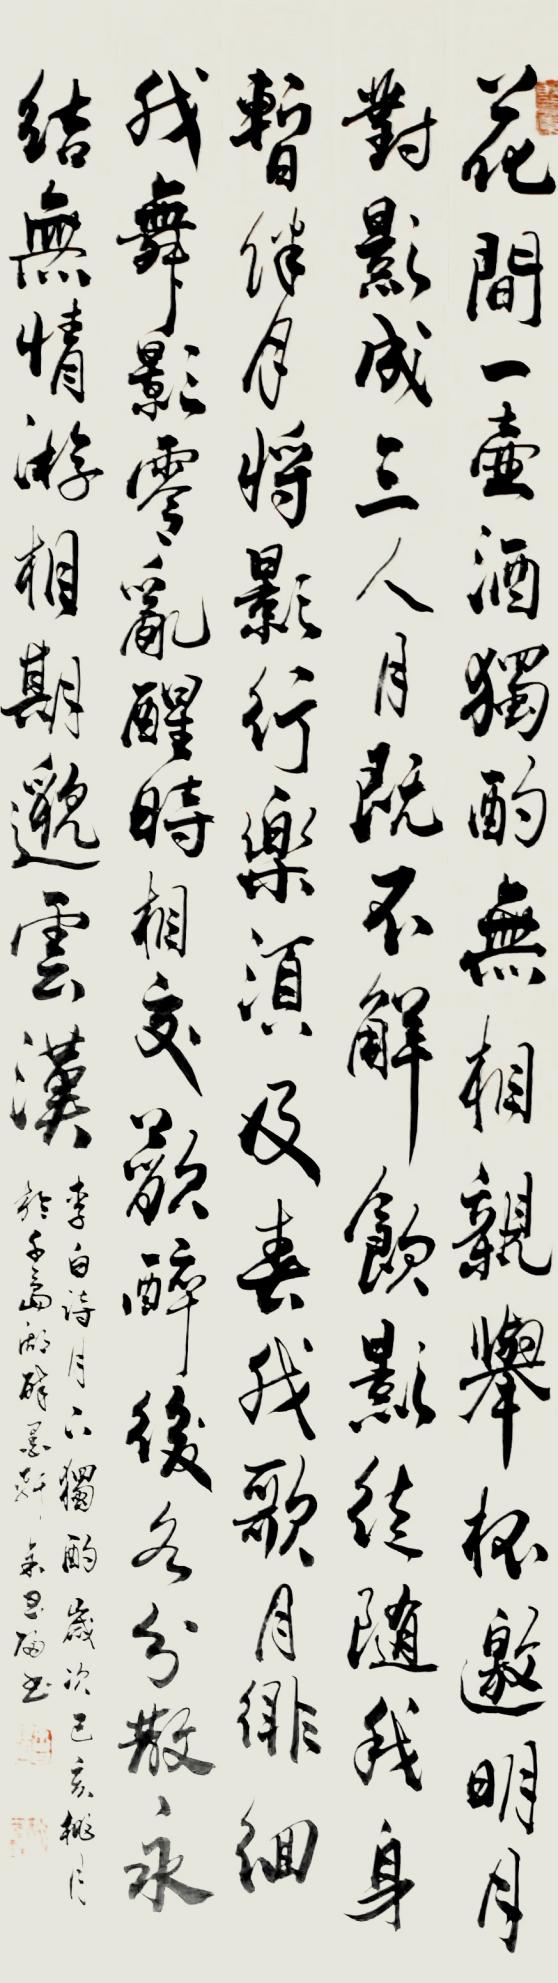 花間一壺酒獨酌無相親舉杯邀明月
對影成三人月既不解飲影徒隨我身
暫伴月將影行樂須及春我歌月徘徊
我舞影零亂醒時相交歡醉後各分散永
結無情游相期邈雲漢
李白詩月下獨酌歲次己亥桃月
於千島湖醉墨軒書